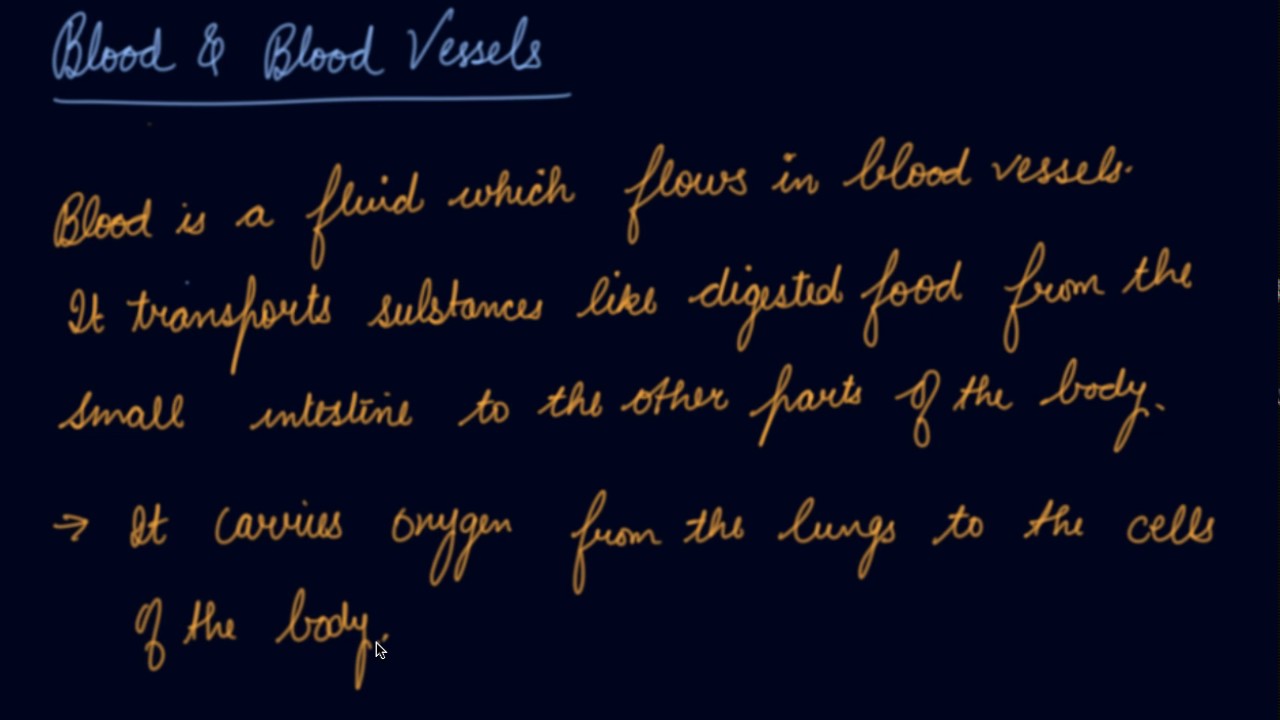 Blood & Blood Vessels
Blood is a fluid which flows in blood vessels.
It transports substances like digested food from the
small intestine to the other parts of the body.
→ It carries oxygen from the lungs to the cells
of the body.